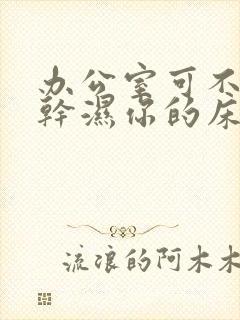 办公室可不
幹濕你的床
流浪的阿木木